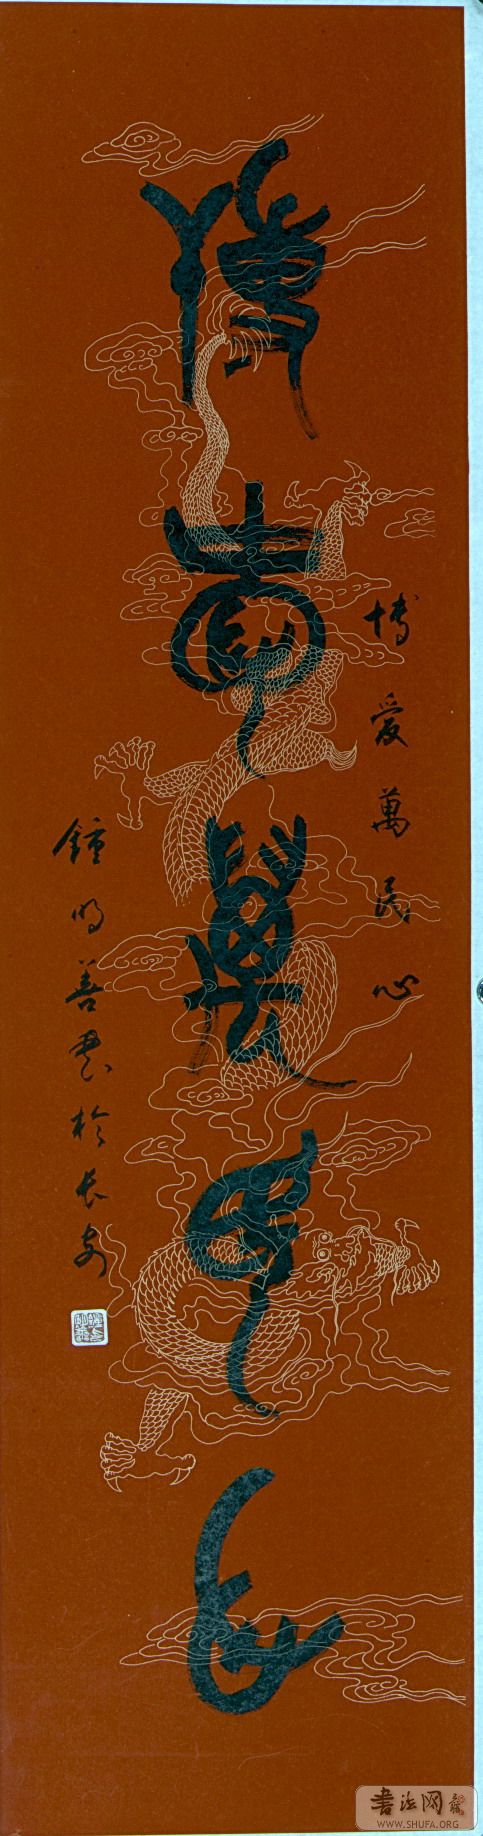 博爱萬民心
博爱萬民心
鍾明善書於长安
書法网
WWW.SHUFA.ORG